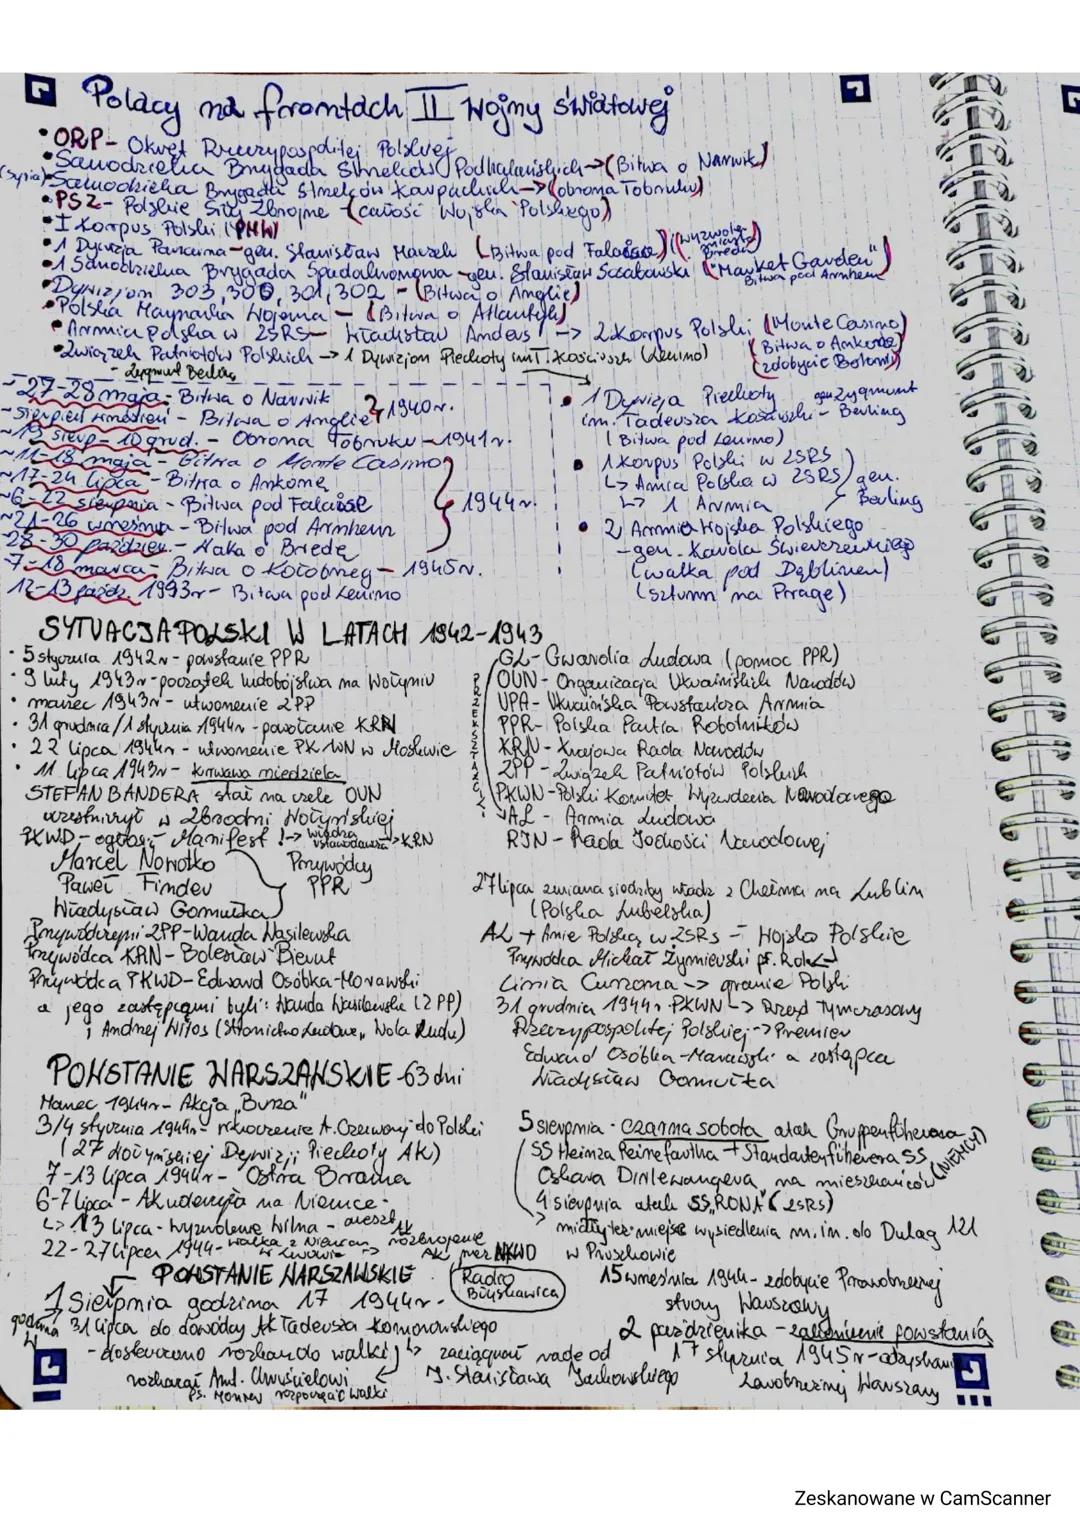 Polacy na frontach II Wojny światowej
• ORP - Okręt Rzeczypospolitej Polskiej
• Samodzielna Brygada Strzelców Podhalańskich -> (Bitwa o Narwik)
(Syria) • Samodzielna Brygada Strzelców Karpackich -> (obrona Tobruku)
• PSZ - Polskie Siły Zbrojne - (całość Wojska Polskiego)
• I Korpus Polski
• 1 Dywizja Pancerna - gen. Stanisław Maczek (Bitwa pod Falaise) (wyzwole. miasta Breda)
• 1 Samodzielna Brygada Spadochronowa - gen. Stanisław Sosabowski ("Market Garden" Bitwa pod Arnhem)
• Dywizjon 303, 300, 301, 302 - (Bitwa o Anglię)
• Polska Marynarka Wojenna - (Bitwa o Atlantyk)
• Armia Polska w ZSRS - Władysław Anders -> 2 Korpus Polski (Monte Casino)
(Bitwa o Ankonę)
(zdobycie Bolonii)
• Związek Patriotów Polskich -> 1 Dywizjon Piechoty im T. Kościuszki (Lenino)
- Zygmunt Berling
- 27-28 maja - Bitwa o Narwik
- Sierpień - Bitwa o Anglię } 1940r.
~ 19 sierp - 10 grud. - Obrona Tobruku - 1941r.
~ 11-18 maja - Bitwa o Monte Casino
~ 17-24 lipca - Bitwa o Ankonę
~ 6-22 sierpnia - Bitwa pod Falaise } 1944r.
~ 21-26 września - Bitwa pod Arnhem
- 28-30 paździer. - Walka o Bredę
- 7-18 marca - Bitwa o Kołobrzeg - 1945r.
12-13 paźdz. 1943r - Bitwa pod Lenino
• 1 Dywizja Piechoty gen Zygmunt
im. Tadeusza Kościuszki - Berling
(Bitwa pod Lenino)
• 1 Korpus Polski w ZSRS
↳ Armia Polska w ZSRS } gen.
↳ 1 Armia Berling
• 2 Armia Wojska Polskiego
- gen. Karola Świerczewskiego
(walka pod Dęblinem)
(szturm na Pragę)
SYTUACJA POLSKI W LATACH 1942-1943
• 5 stycznia 1942r - powstanie PPR
• 9 luty 1943r - początek ludobójstwa na Wołyniu
• marzec 1943r - utworzenie ZPP
• 31 grudnia/1 stycznia 1944r - powołanie KRN
• 22 lipca 1944r - utworzenie PKWN w Moskwie
• 11 lipca 1943r - krwawa niedziela
STEFAN BANDERA stał na czele OUN
uczestniczył w Zbrodni Wołyńskiej
PKWD - ogłosił Manifest !-> władza ustawodawcza -> KRN
Marcel Nowotko
Paweł Finder
Władysław Gomułka
Przywódcy PPR
Przywódczyni ZPP - Wanda Wasilewska
Przywódca KRN - Bolesław Bierut
Przywódca PKWD - Edward Osóbka-Morawski
a jego zastępcami byli: Wanda Wasilewska (ZPP)
i Andrzej Witos (Stronictwo Ludowe "Wola Ludu)
PRZEKSZTAŁCI.
GL - Gwardia Ludowa (pomoc PPR)
OUN - Organizacja Ukraińskich Narodów
UPA - Ukraińska Powstańcza Armia
PPR - Polska Partia Robotników
KRN - Krajowa Rada Narodów
ZPP - Związek Patriotów Polskich
PKWN - Polski Komitet Wyzwolenia Narodowego
AL - Armia Ludowa
RJN - Rada Jedności Narodowej
27 lipca zmiana siedziby władz z Chełma na Lublin
(Polska Lubelska)
AL + Armie Polską w ZSRS - Wojsko Polskie
Przywódca Michał Żymierski ps. Rola
Linia Curzona -> granie Polski
31 grudnia 1944r PKWN -> Rząd Tymczasowy
Rzeczypospolitej Polskiej -> Premier
Edward Osóbka-Morawski a zastępca
Władysław Gomułka
POWSTANIE WARSZAWSKIE - 63 dni
Marzec 1944r - Akcja "Burza"
3/4 stycznia 1944r - wkroczenie A. Czerwonej do Polski
(27 Wołyńskiej Dywizji Piechoty AK)
7-13 lipca 1944r - Ostra Brama
6-7 lipca - AK uderzyła na Niemce.
↳ 13 lipca - wyzwolenie Wilna - areszt AK
22-27 lipca 1944 - walka z Niemcami w Lwowie -> rozbrojenie AK przez NKWD
POWSTANIE WARSZAWSKIE
Radio Błyskawica
1 Sierpnia godzina 17 1944r.
godzina W
31 lipca do dowódcy AK Tadeusza Komorowskiego
- dostarczono rozkaz do walki ↳ zaciągnął radę od
rozkazał Ant. Chruścielowi J. Stanisława Jankowskiego
ps. Monter rozpocząć walki
5 sierpnia - czarna sobota atak Gruppenführera
SS Heinza Reinefartha + Standartenführera SS (NIEMCY)
Oskara Dirlewangera na mieszkańców
4 sierpnia atak SS "RONA" (ZSRS)
-> miały też miejsce wysiedlenia m.in. do Dulag 121
w Pruszkowie
15 września 1944 - zdobycie Prawobrzeżnej
strony Warszawy
2 października - zakończenie powstania
17 stycznia 1945r - odzyskani
Lewobrzeżnej Warszawy
Zeskanowane w CamScanner